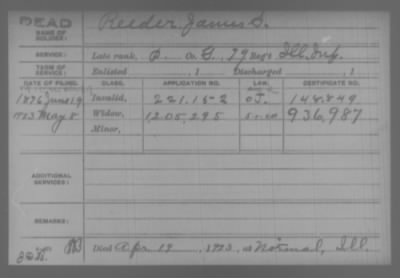 DEAD
NAME OF SOLDIER: Reeder, James S.
SERVICE: Late rank, P. Co. G, 79 Reg't Ill. Inf.
TERM OF SERVICE: Enlisted , 1 Discharged , 1
DATE OF FILING. CLASS. APPLICATION NO. LAW. CERTIFICATE NO.
1876 June 19 Invalid, 221.152 O.L. 148.849
1923 May 8 Widow, 1205,295 936,987
Minor,
ADDITIONAL SERVICES:
REMARKS:
Died Apr 19, 1923, at Normal, Ill.